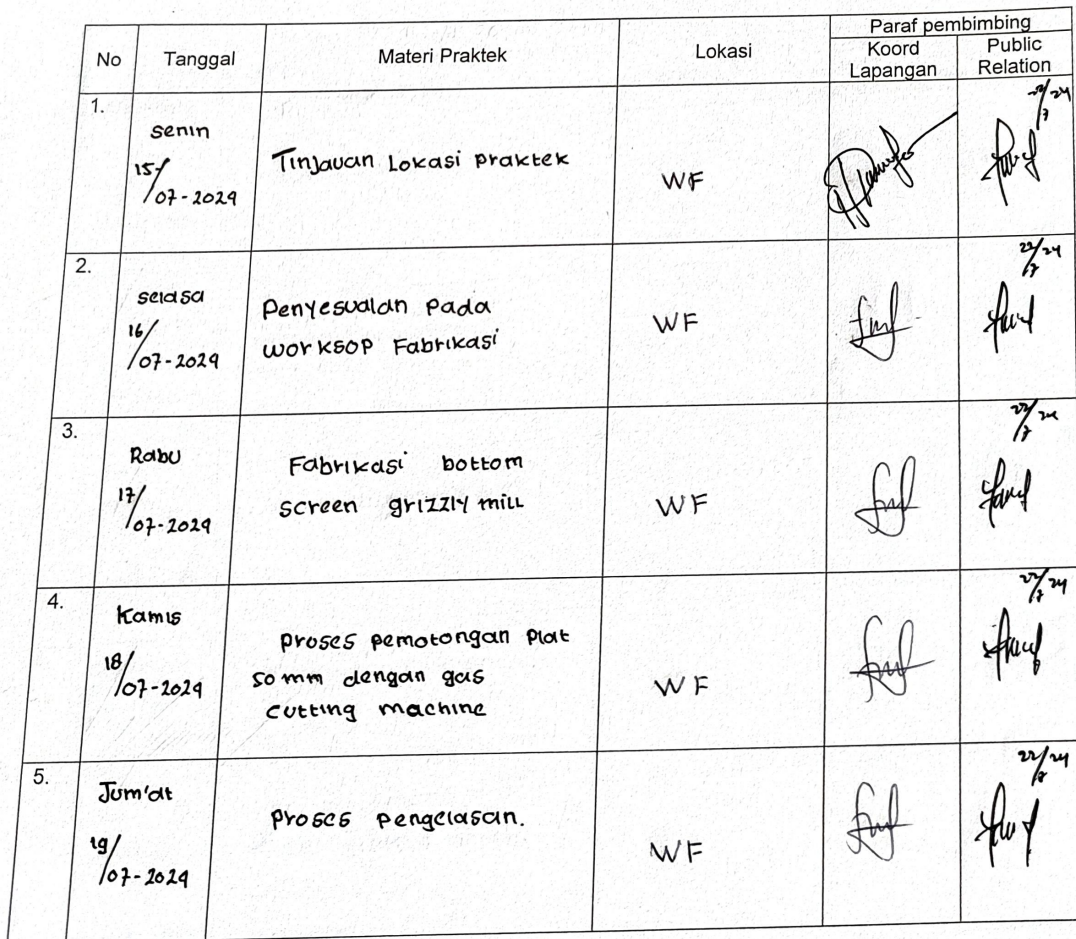 Paraf pembimbing
No Tanggal Materi Praktek Lokasi Koord Lapangan Public Relation
1.
Senin
15/07-2024
Tinjauan Lokasi praktek
WF
22/7 24
2.
selasa
16/07-2024
Penyesuaian pada
worksop Fabrikasi
WF
22/7 24
3.
Rabu
17/07-2024
Fabrikasi bottom
screen grizzly mill
WF
22/7 24
4.
Kamis
18/07-2024
proses pemotongan plat
50 mm dengan gas
cutting machine
WF
22/7 24
5.
Jum'at
19/07-2024
proses pengelasan.
WF
22/7 24